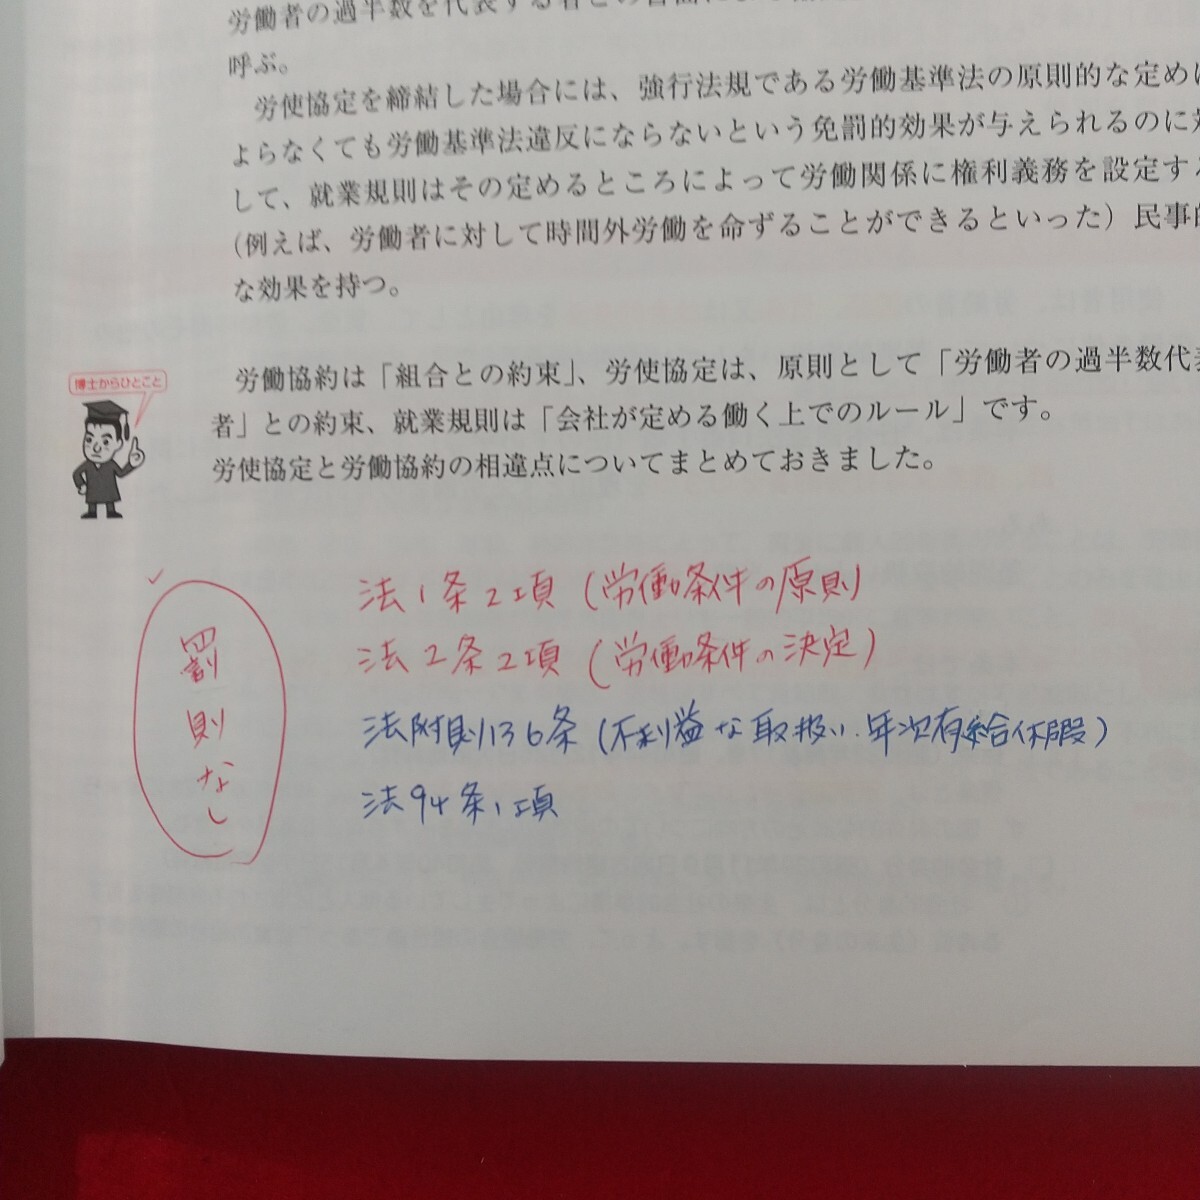 労働者の過半数を代表する者との書面による
呼ぶ。
労使協定を締結した場合には、強行法規である労働基準法の原則的な定めに
よらなくても労働基準法違反にならないという免罰的効果が与えられるのに対
して、就業規則はその定めるところによって労働関係に権利義務を設定する
(例えば、労働者に対して時間外労働を命ずることができるといった) 民事的
な効果を持つ。
博士からひとこと
労働協約は「組合との約束」、労使協定は、原則として「労働者の過半数代表
者」との約束、就業規則は「会社が定める働く上でのルール」です。
労使協定と労働協約の相違点についてまとめておきました。
罰則なし
法1条2項 (労働条件の原則)
法2条2項 (労働条件の決定)
法附則136条 (不利益な取扱い.年次有給休暇)
法94条1項